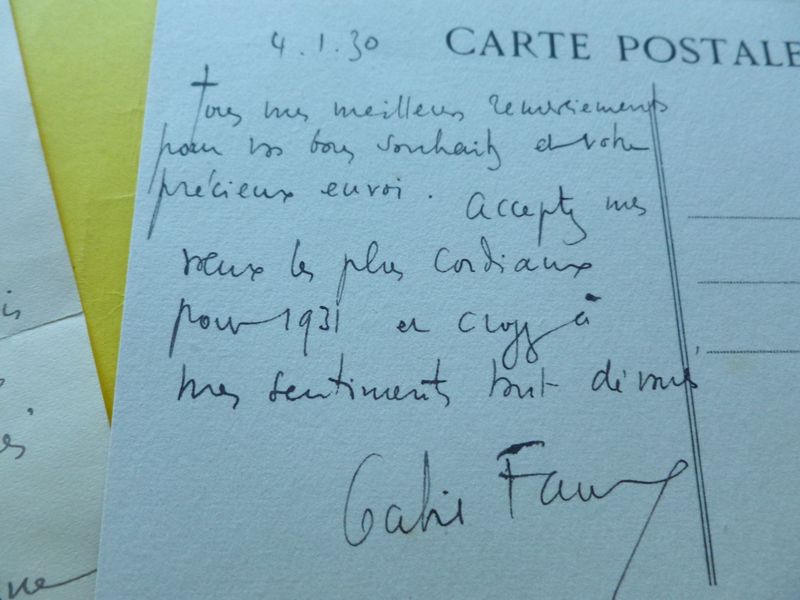 4.1.30
CARTE POSTALE
Tous mes meilleurs remerciements
pour vos bons souhaits et votre
précieux envoi. Acceptez mes
vœux les plus cordiaux
pour 1931 et croyez à
mes sentiments tout dévoués
Gabriel Faure
is
es
ne